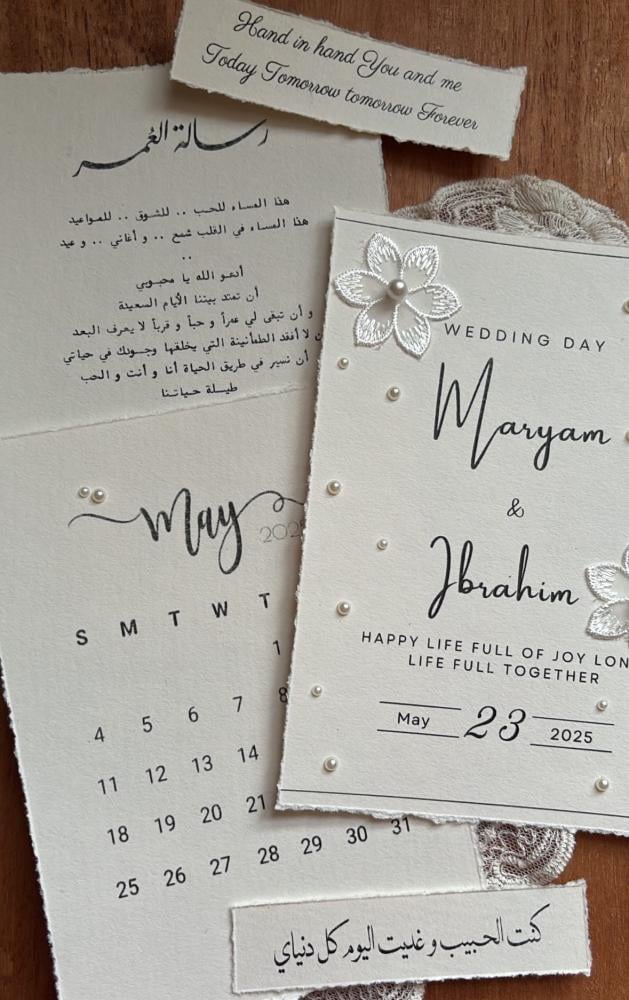 Hand in hand You and me
Today Tomorrow tomorrow Forever
رسالة العُمر
هذا المساء للحب .. للشوق .. للمواعيد
هذا المساء في القلب شمع .. و أغاني .. و عيد
..
أدعو الله يا محبوبي
أن تمتد بيننا الأيام السعيدة
و أن تبقى لي عمراً و حباً و قرباً لا يعرف البعد
لا أفقد الطمأنينة التي يخلقها وجودك في حياتي
أن نسير في طريق الحياة أنا و أنت و الحب
طيلة حياتنا
WEDDING DAY
Maryam
&
Ibrahim
HAPPY LIFE FULL OF JOY
LIFE FULL TOGETHER
May 23 2025
May
2025
S M T W T
1
4 5 6 7 8
11 12 13 14
18 19 20 21
25 26 27 28 29 30 31
كنت الحبيب و غديت اليوم كل دنياي